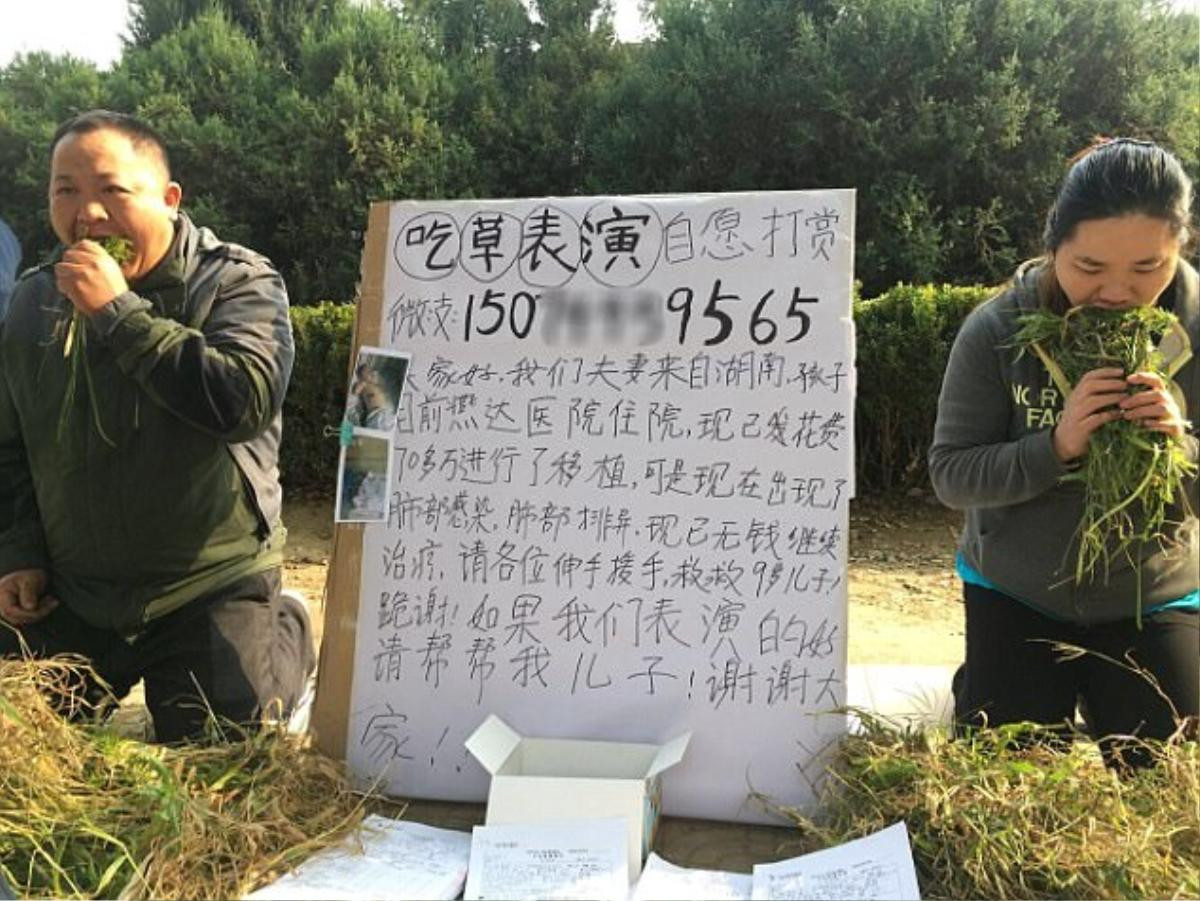 吃草表演 自愿打赏
微支:150 9565
大家好,我们夫妻来自湖南,孩子
目前燕达医院住院,现已经花费
70多万进行了移植,可是现在出现了
肺部感染,肺部排异,现已无钱继续
治疗,请各位伸手援手,救救9岁儿子!
跪谢!如果我们表演的好
请帮帮我儿子!谢谢大
家!!
NOR
FAC